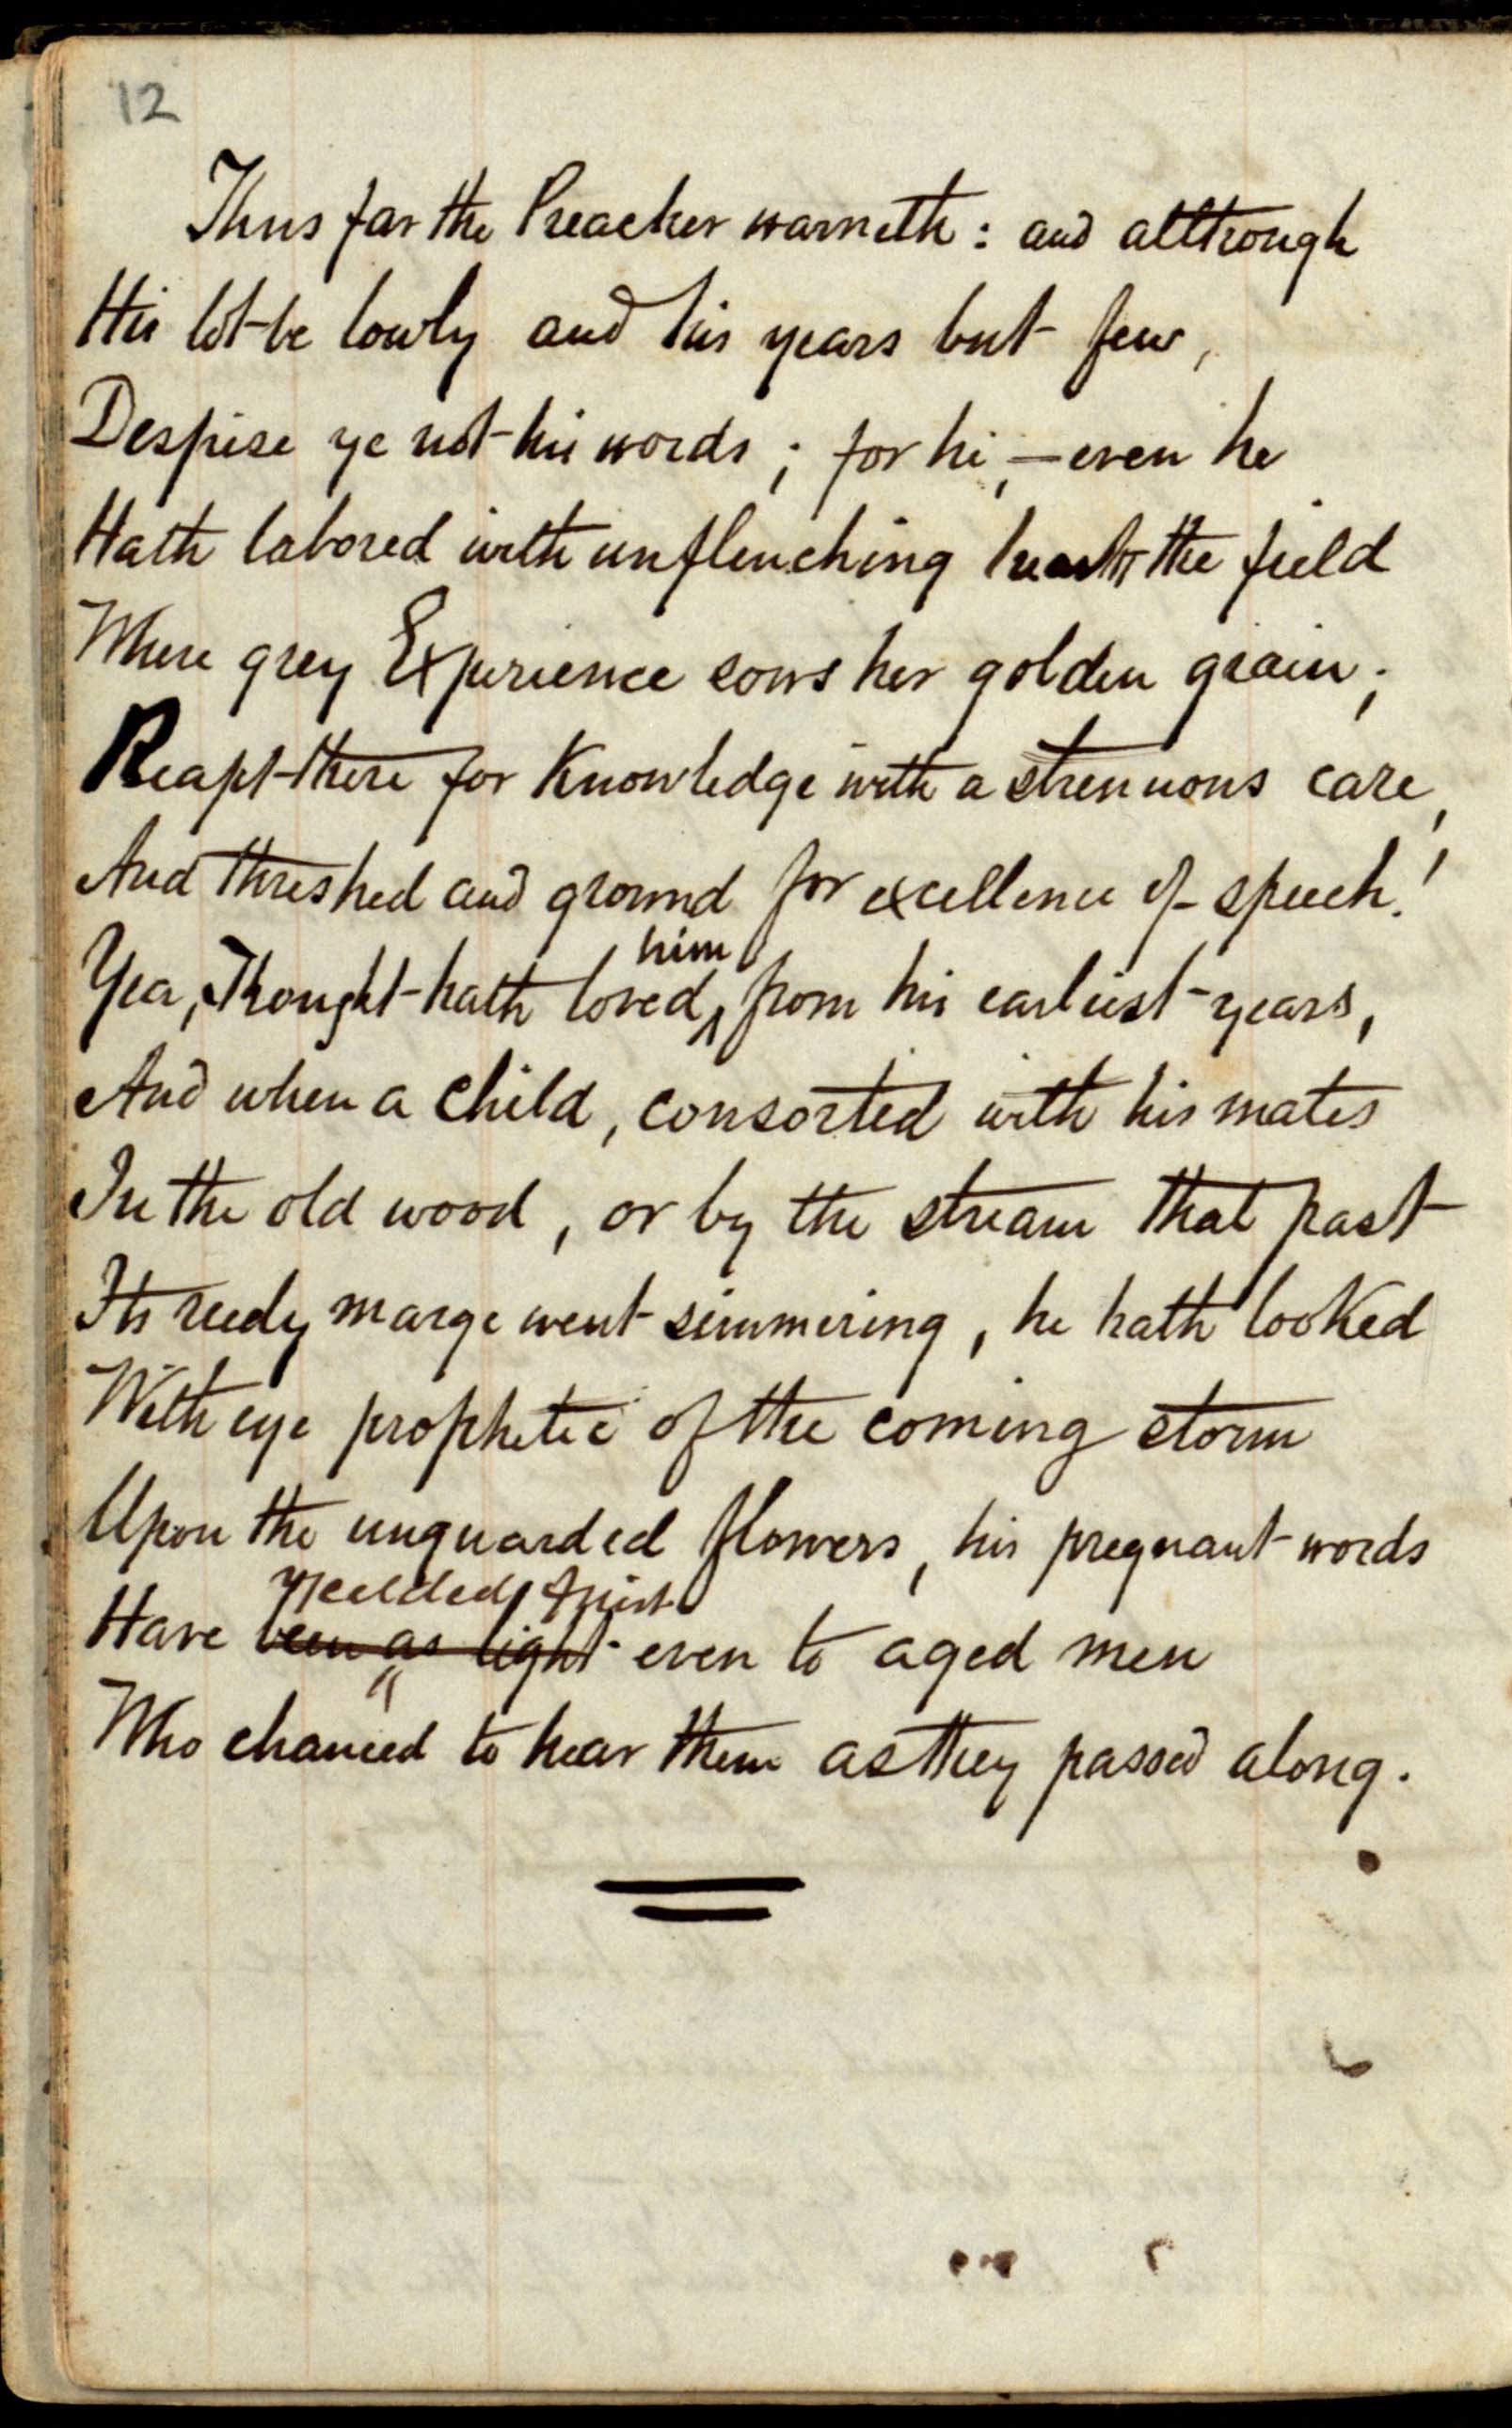 12
Thus far the Preacher warneth : and although
His lot be lowly and his years but few,
Despise ye not his words ; for he, — even he
Hath labored with unflenching heart the field
Where grey Experience sows her golden grain ;
Reapt there for Knowledge with a strenuous care,
And threshed and ground for excellence of speech !
him
Yea, Thought hath loved from his earliest years,
And when a child, consorted with his mates
In the old wood, or by the stream that past
Its reedy marge went simmering, he hath looked
With eye prophetic of the coming storm
Upon the unguarded flowers, his pregnant words
yielded fruit
Have been as light even to aged men
Who chanced to hear them as they passed along.